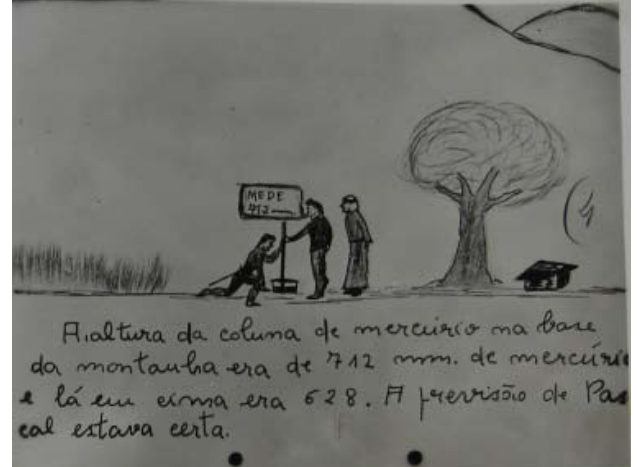 MEDE
712 mm
A altura da coluna de mercúrio na base
da montanha era de 712 mm. de mercúrio
e lá em cima era 628. A previsão de Pas
cal estava certa.